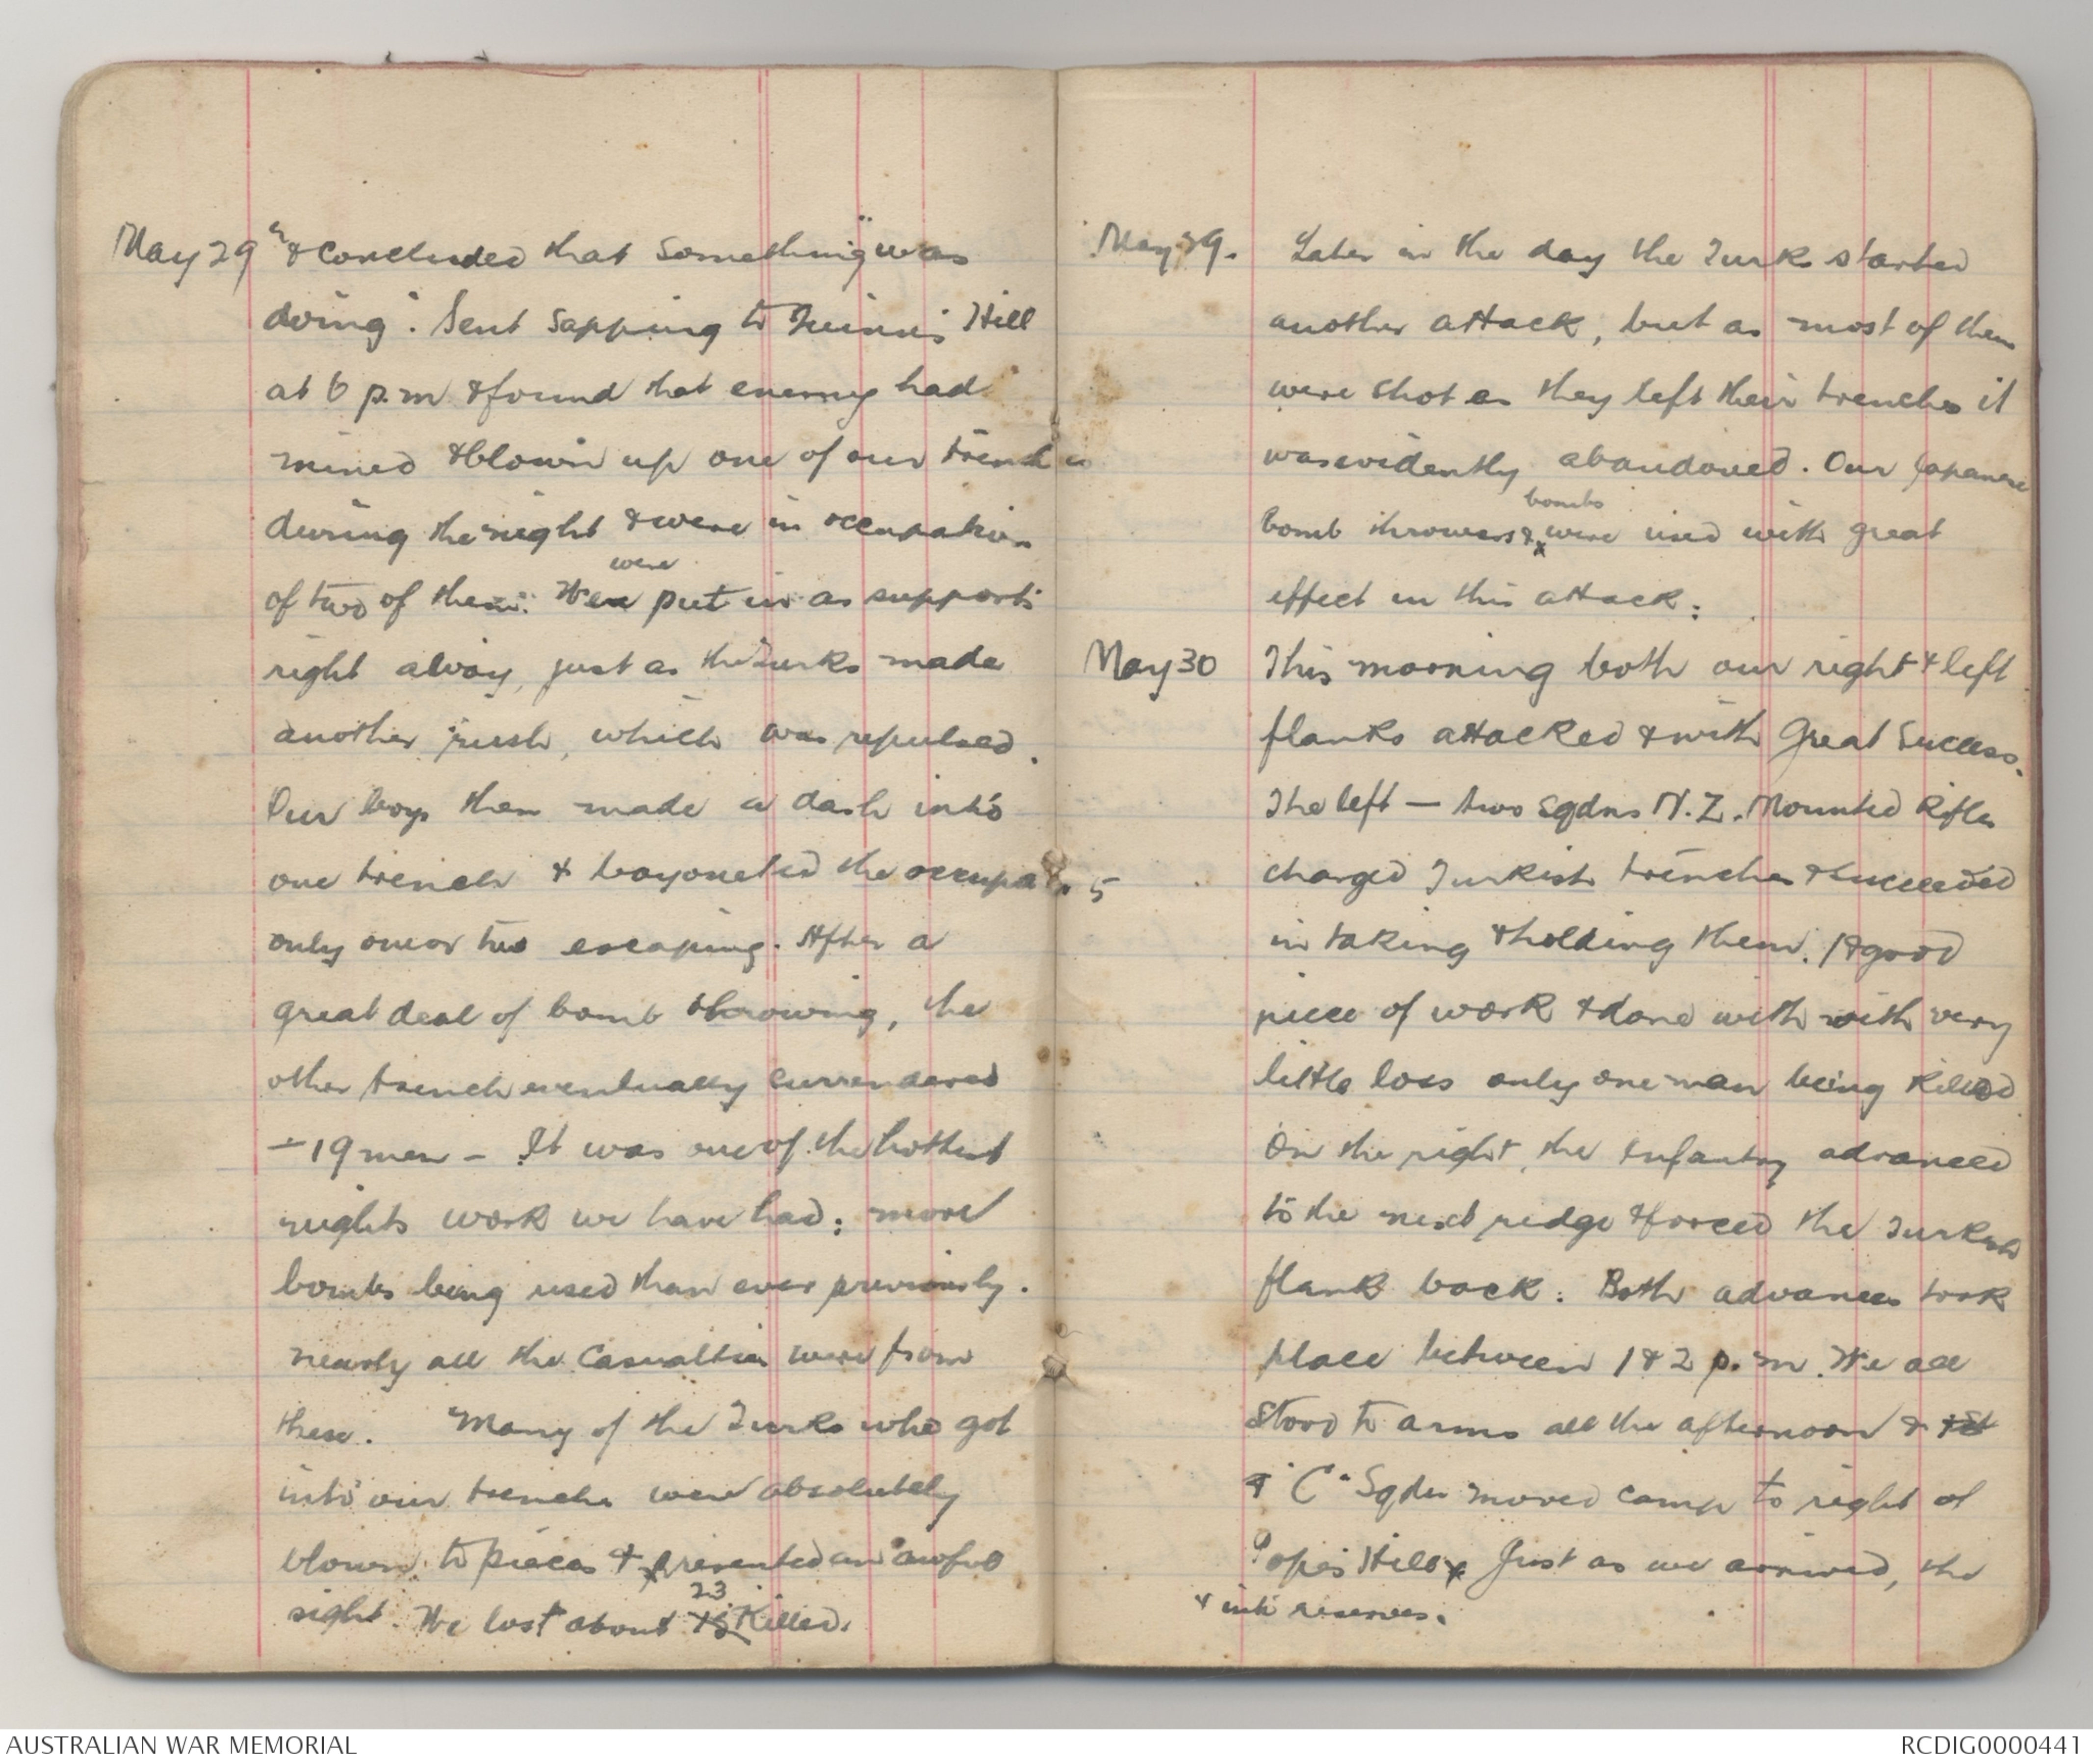 May 29th & concluded that "something was
doing". Sent sapping to Quinn's Hill
at 6 p.m & found that enemy had
mined & blown up one of our trenches
during the night & were in occupation
of two of them. We were put in as supports
right away, just as the Turks made
another rush, which was repulsed.
Our boys then made a dash into
one trench & bayoneted the occupants
only one or two escaping. After a
great deal of bomb throwing, the
other trench eventually surrendered
- 19 men - It was one of the hottest
nights work we have had: more
bombs being used than ever previously.
nearly all the casualties were from
these. Many of the Turks who got
into our trenches were absolutely
blown to pieces & presented an awful
sight. We lost about 23 killed.
May 29. Later in the day the Turks started
another attack, but as most of them
were shot as they left their trenches it
was evidently abandoned. Our Japanese
bomb throwers & bombs were used with great
effect in this attack.
May 30 This morning both our right & left
flanks attacked & with great success.
The left - two Sqdns N.Z. Mounted Rifles
charged Turkish trenches & succeeded
in taking & holding them. A good
piece of work & done with with very
little loss only one man being killed
On the right, the Infantry advanced
to the next ridge & forced the Turkish
flank back. Both advances took
place between 1 & 2 p.m. We all
stood to arms all the afternoon &
& "C" Sqdn moved camp to right of
Popes Hill x Just as we arrived, the
& into reserves.
5
AUSTRALIAN WAR MEMORIAL
RCDIG0000441